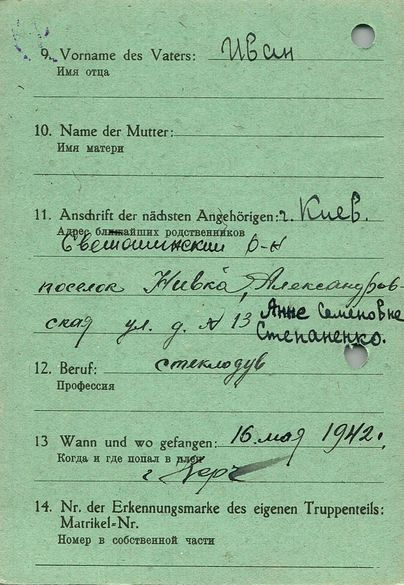 9. Vorname des Vaters: Иван
Имя отца
10. Name der Mutter:
Имя матери
11. Anschrift der nächsten Angehörigen: г. Киев.
Адрес ближайших родственников
Святошинский р-н
поселок Нивка, Александров-
ская ул. д. № 13 Анне Семеновне
Степаненко.
12. Beruf: стеклодув
Профессия
13 Wann und wo gefangen: 16. мая 1942 г.
Когда и где попал в плен
г Керч
14. Nr. der Erkennungsmarke des eigenen Truppenteils:
Matrikel-Nr.
Номер в собственной части